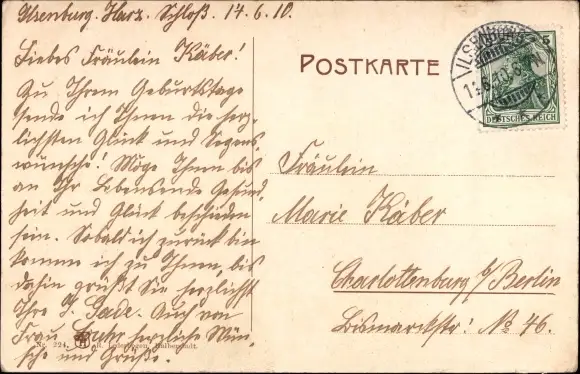 Ilsenburg. Harz. Schloß. 14.6.10.
Liebes Fräulein Käber!
Zu Ihrem Geburtstage
sende ich Ihnen die herz-
lichsten Glück und Segens-
wünsche! Möge Ihnen bis
an Ihr Lebensende Gesund-
heit und Glück beschieden
sein. Sobald ich zurück bin
komme ich zu Ihnen, bis
dahin grüßt Sie herzlichst
Ihre J. Gade. Auch von
Frau herzliche Wün-
sche und Grüße.
Nr. 224 R. Lederbogen, Halberstadt.
POSTKARTE
ILSENBURG
5
DEUTSCHES REICH
Fräulein
Marie Käber
Charlottenburg b/Berlin
Bismarckstr: No 46.